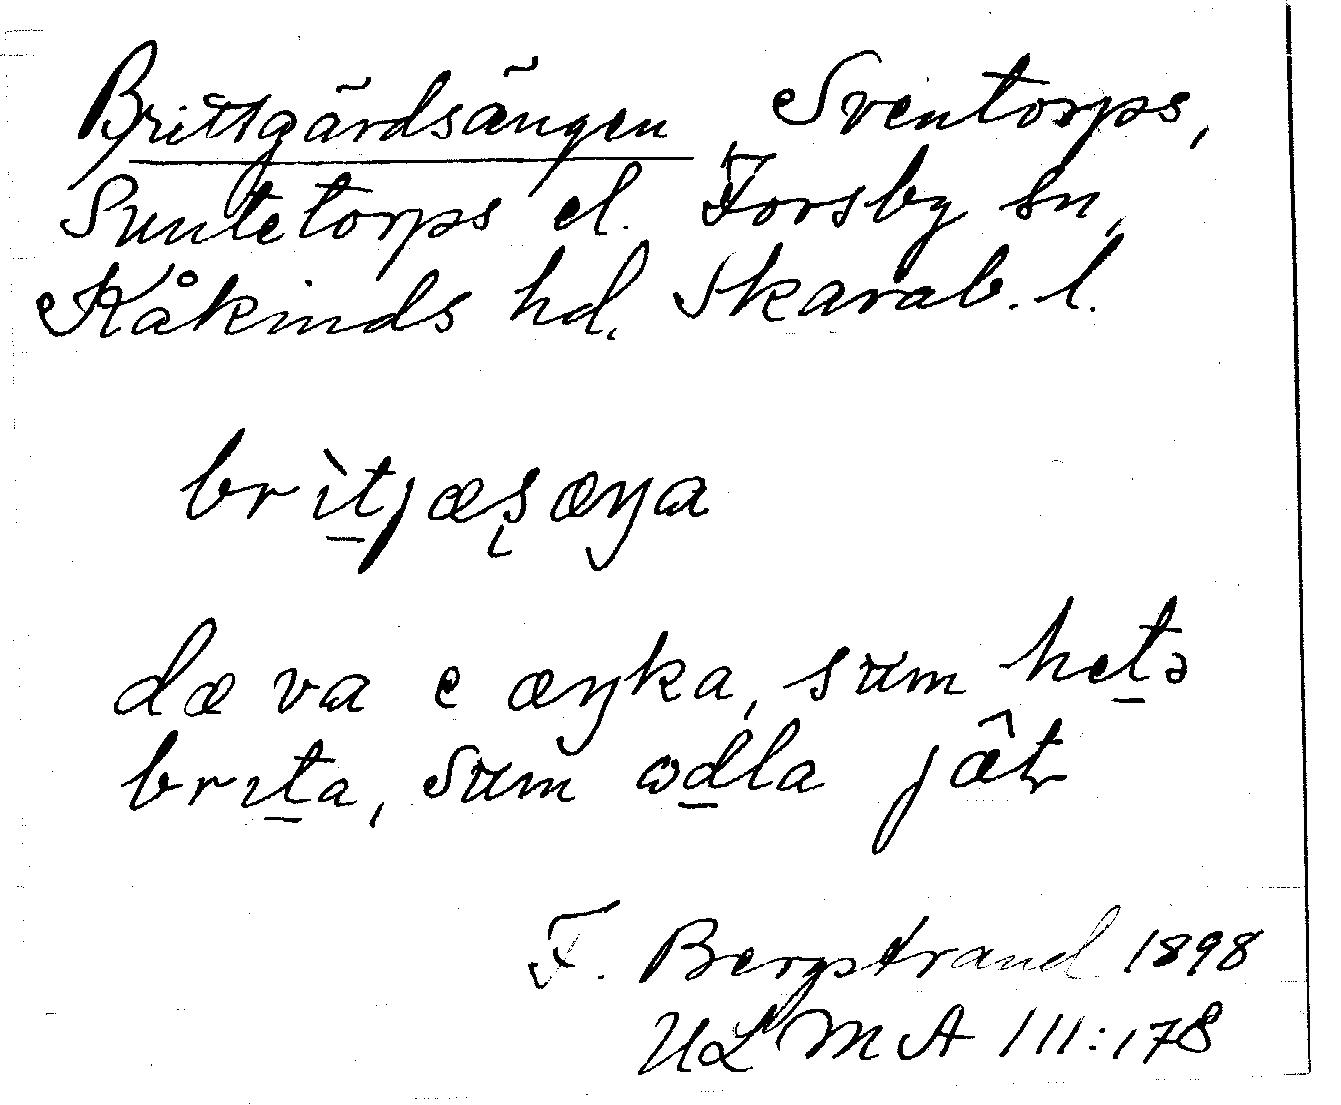 Brittgärdsängen, Sventorps,
Suntetorps el. Forsby sn,
Kåkinds hd. Skarab. l.
brìt̲jæʂæŋa
dæ va e æŋka, sum het̲ə
brıt̲a, sum ωd̲la jæ̂tɽ
F. Bergstrand 1898
ULMA 111:178